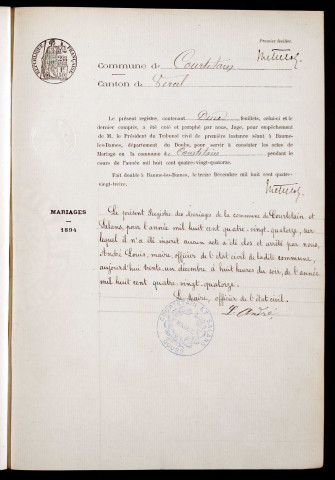 Premier Feuillet.
Commune de Courtetain
Canton de Vercel
Le présent registre, contenant Deux feuillets, celui-ci et le
dernier compris, a été coté et paraphé par nous, Juge, pour empêchement
de M. le Président du Tribunal civil de première instance séant à Baume-
les-Dames, département du Doubs, pour servir à constater les actes de
Mariage en la commune de Courtetain pendant le
cours de l'année mil huit cent quatre-vingt-quatorze.
Fait double à Baume-les-Dames, le treize Décembre mil huit cent quatre-
vingt-treize.
MARIAGES
1894
Le présent Registre des Mariages de la commune de Courtetain et
Salans, pour l'année mil huit cent quatre-vingt-quatorze, sur
lequel il n'a été inscrit aucun acte a été clos et arrêté par nous,
André Louis, maire, officier de l'état civil de ladite commune,
aujourd'hui trente un décembre à huit heures du soir, de l'année
mil huit cent quatre-vingt-quatorze.
Le Maire, officier de l'état civil.
L. André